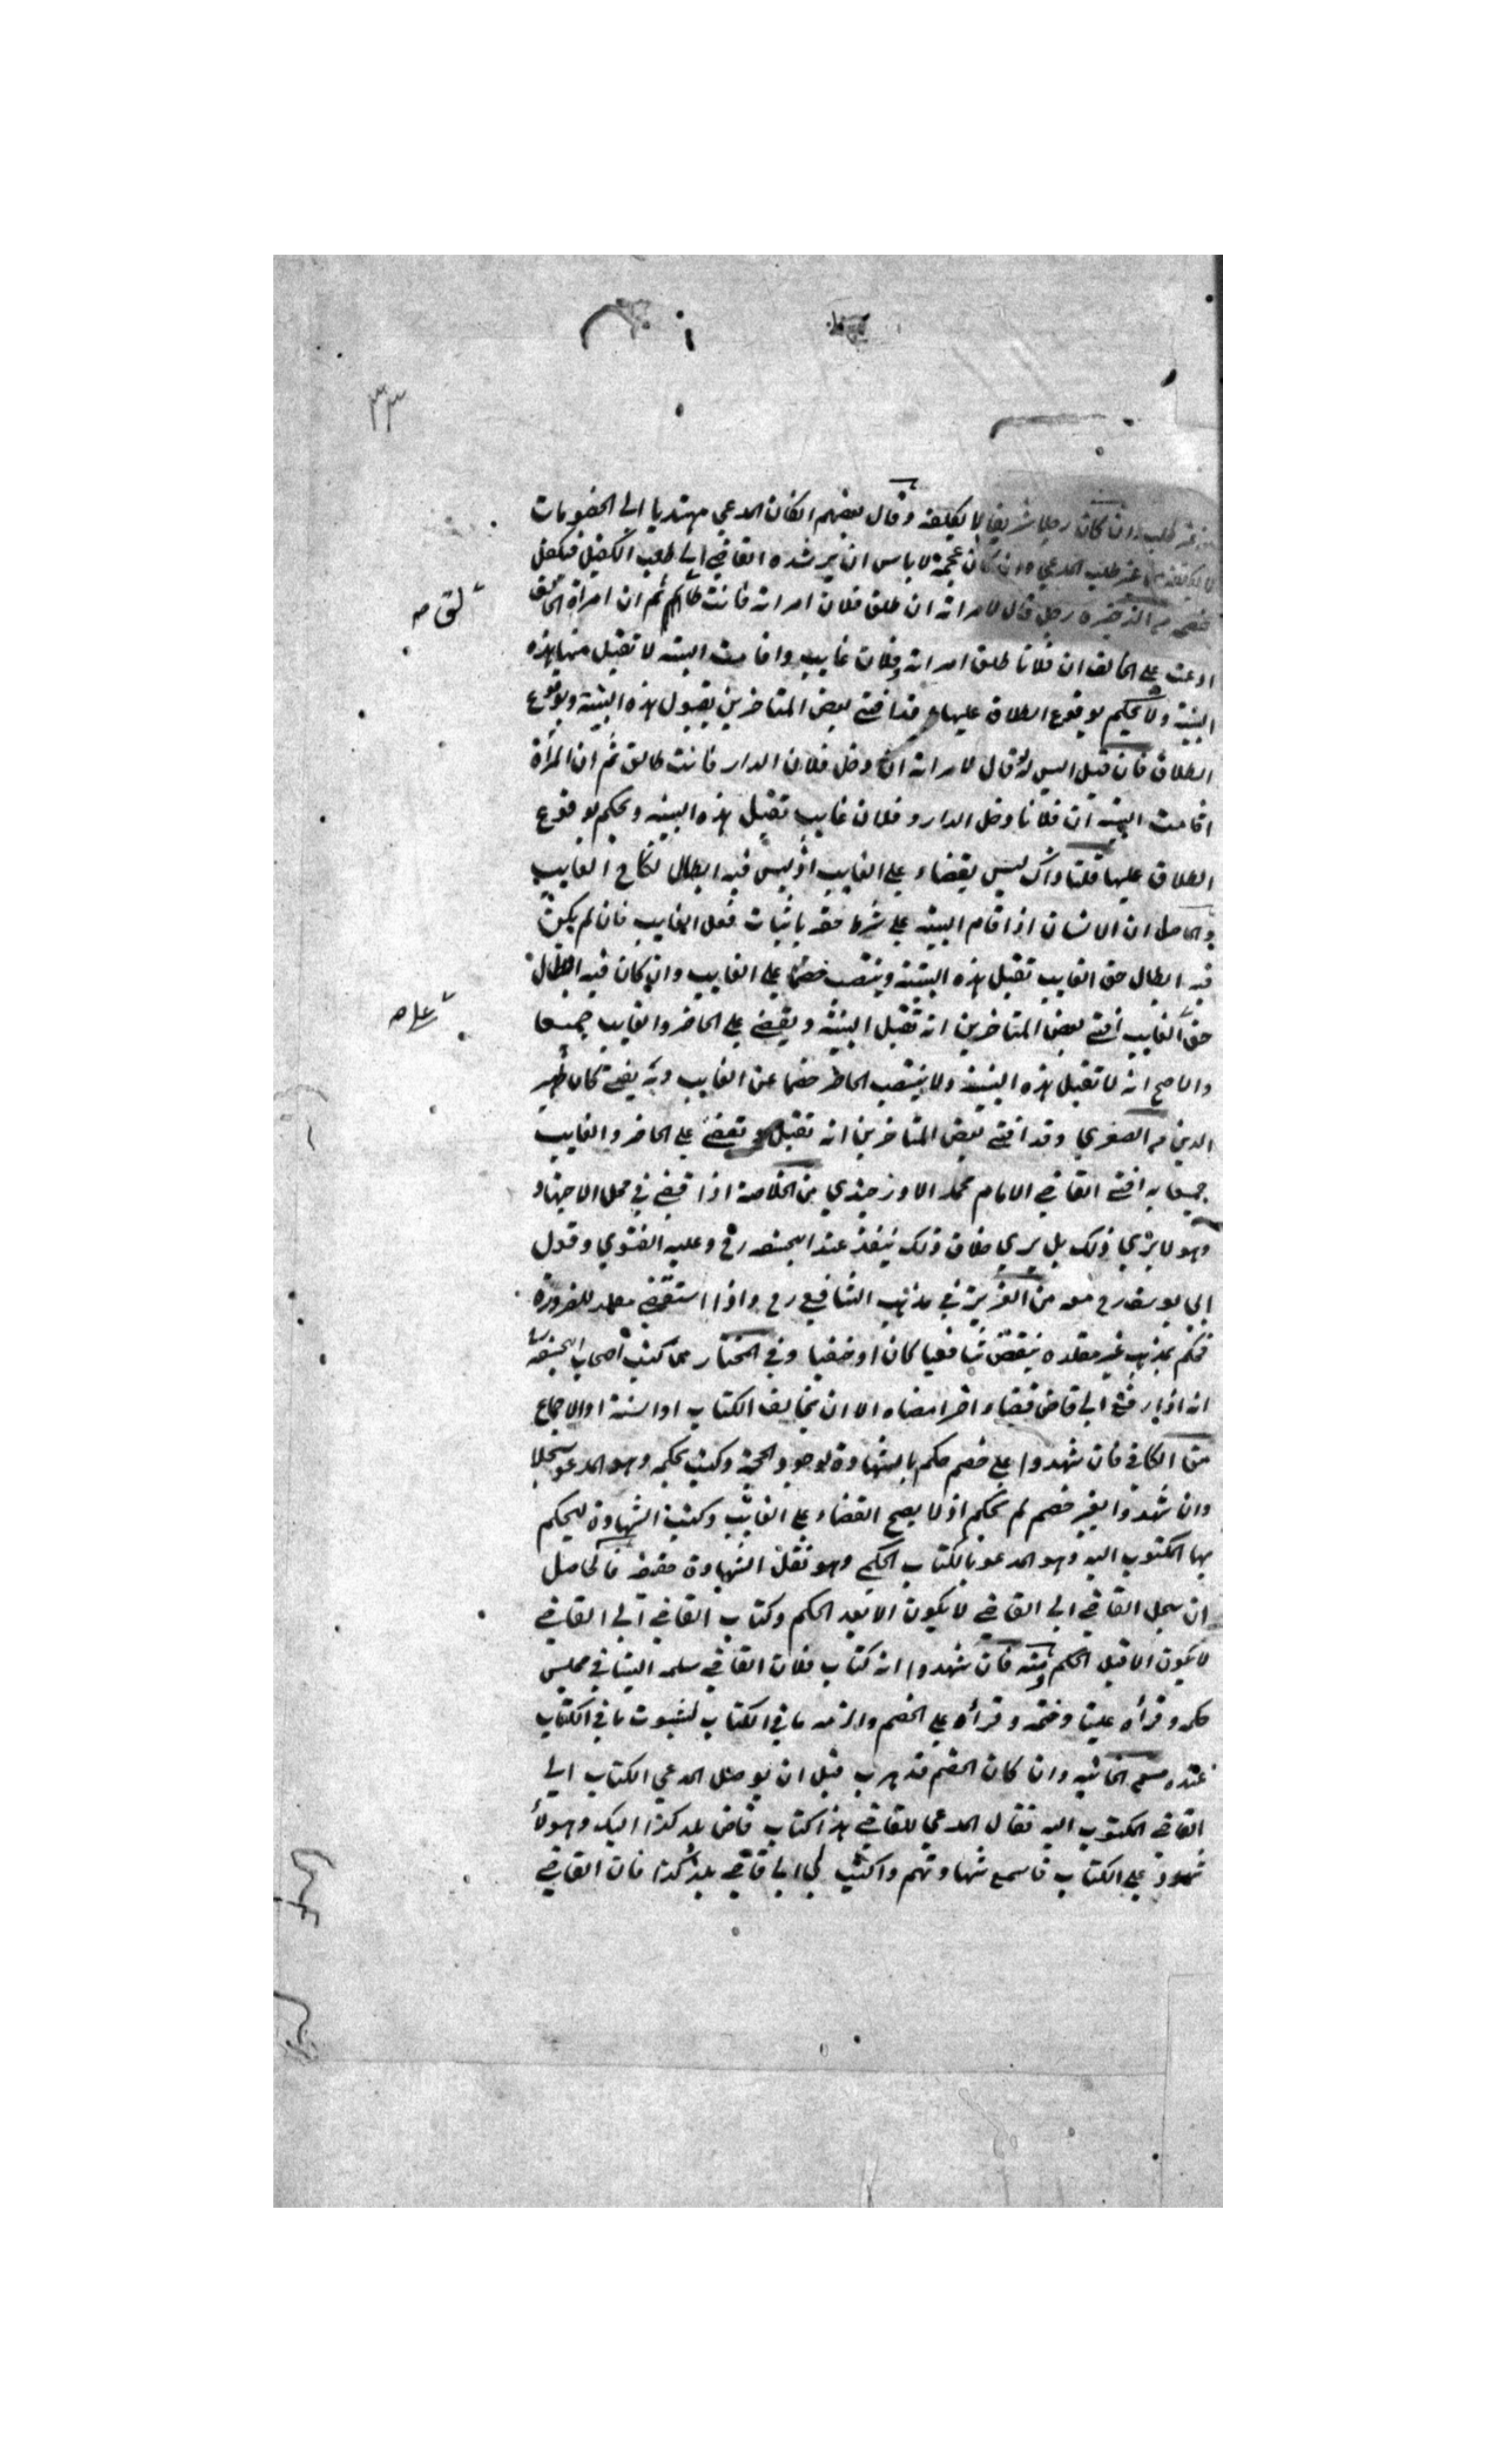 ٣٣
من غير طلب وان كان رجلا شريفا لا يكلفه وقال بعضهم انكان المدعي مهتديا الي الخصومات
لا يكلفه من غير طلب المدعي وان كان عجمة لا باس ان يرشده القاضي الي طلب الكفيل فيكفل
من الذخيرة رجل قال لامراته ان طلق فلان امراته فانت طالق ثم ان امراة الحالف
لق مه
ادعت علي الحالف ان فلانا طلق امراته وفلان غايب واقامت البينه لا تقبل منها هذه
البينه ولا يحكم بوقوع الطلاق عليها وقد افتي بعض المتاخرين بقبول هذه البينه وبوقوع
الطلاق فان قيل اليس لو قال لامراته ان دخل فلان الدار فانت طالق ثم ان المراة
اقامت البينه ان فلانا دخل الدار وفلان غايب تقبل هذه البينه ويحكم بوقوع
الطلاق عليها قلنا ذاك ليس بقضاء علي الغايب اذ ليس فيه ابطال نكاح الغايب
والحاصل ان الانسان اذا اقام البينه علي شرط حقه باثبات فعل الغايب فان لم يكن
فيه ابطال حق الغايب تقبل هذه البينه وينتصب خصما علي الغايب وان كان فيه ابطال
حق الغايب افتي بعض المتاخرين انه تقبل البينه ويقضي علي الحاضر والغايب جميعا
والاصح انه لا تقبل هذه البينه ولا ينتصب الحاضر خصما عن الغايب وبه يفتي كان ظهير
الدين من الصغري وقد افتي بعض المتاخرين انه تقبل وتقضي علي الحاضر والغايب
جميعا به افتي القاضي الامام محمد الاوزجندي من الخلاصة اذا قضي في محل الاجتهاد
وهو لا يري ذلك بل يري خلاف ذلك ينفذ عند ابيحنيفه رح وعليه الفتوي وقول
ابي يوسف رح معه من العزيزة في مذهب الشافعي رح واذا استقضي مقلد للضرورة
فحكم بمذهب غير مقلده ينقض شافعيا كان او حنفيا وفي المختار من كتب اصحاب ابيحنيفه
انه اذا رفع الي قاض قضاء اخر امضاه الا ان يخالف الكتاب او السنة او الاجماع
من الكافي فان شهدوا علي خصم حكم بالشهادة لوجود الحجة وكتب بحكمه وهو المدعو سجلا
وان شهدوا بغير خصم لم يحكم اذ لا يصح القضاء علي الغايب وكتب الشهادة ليحكم
بها المكتوب اليه وهو المدعو بالكتاب الحكمي وهو نقل الشهادة حقيقة فالحاصل
ان سجل القاضي الي القاضي لا يكون الا بعد الحكم وكتاب القاضي الي القاضي
لا يكون الا قبل الحكم فان شهدوا انه كتاب فلان القاضي سلمه الينا في مجلس
حكمه وقراه علينا وختمه وقراه علي الخصم والزمه ما في الكتاب لثبوت ما في الكتاب
عنده من الخانيه وان كان الخصم قد هرب قبل ان يوصل المدعي الكتاب الي
القاضي المكتوب اليه فقال المدعي للقاضي هذا كتاب قاضي بلد كذا اليك وهولا
شهود علي الكتاب فاسمع شهادتهم واكتب لي الي قاضي بلد كذا فان القاضي